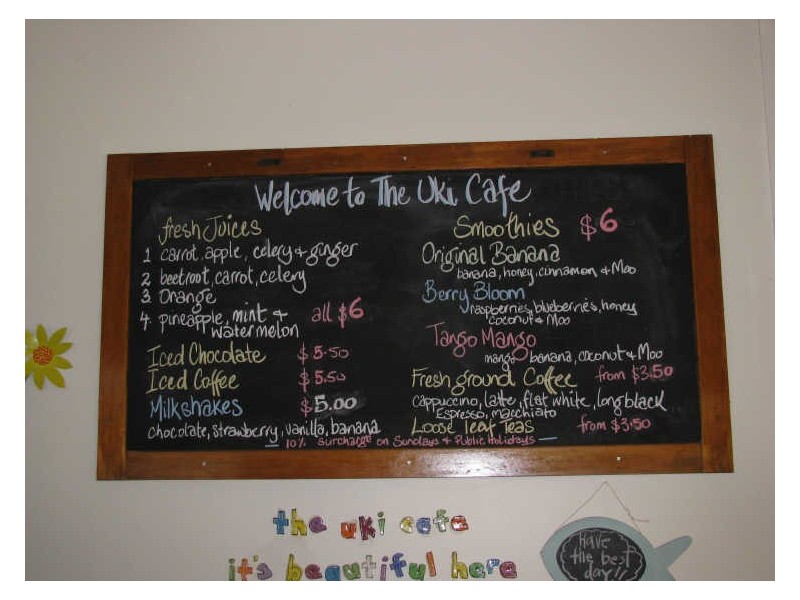 Welcome to The Uki Cafe
fresh Juices
1 carrot, apple, celery & ginger
2 beetroot, carrot, celery
3. Orange
4. pineapple, mint &
watermelon
all $6
Iced Chocolate $5.50
Iced Coffee $5.50
Milkshakes $5.00
chocolate, strawberry, vanilla, banana
Smoothies $6
Original Banana
banana, honey, cinnamon & Moo
Berry Bloom
raspberries, blueberries, honey
coconut & Moo
Tango Mango
mango banana, coconut & Moo
Fresh ground Coffee from $3.50
cappuccino, latte, flat white, long black
Espresso, macchiato
Loose leaf Teas from $3.50
10% surcharge on Sundays & Public Holidays
the uki cafe
it's beautiful here
Have
the best
day!!